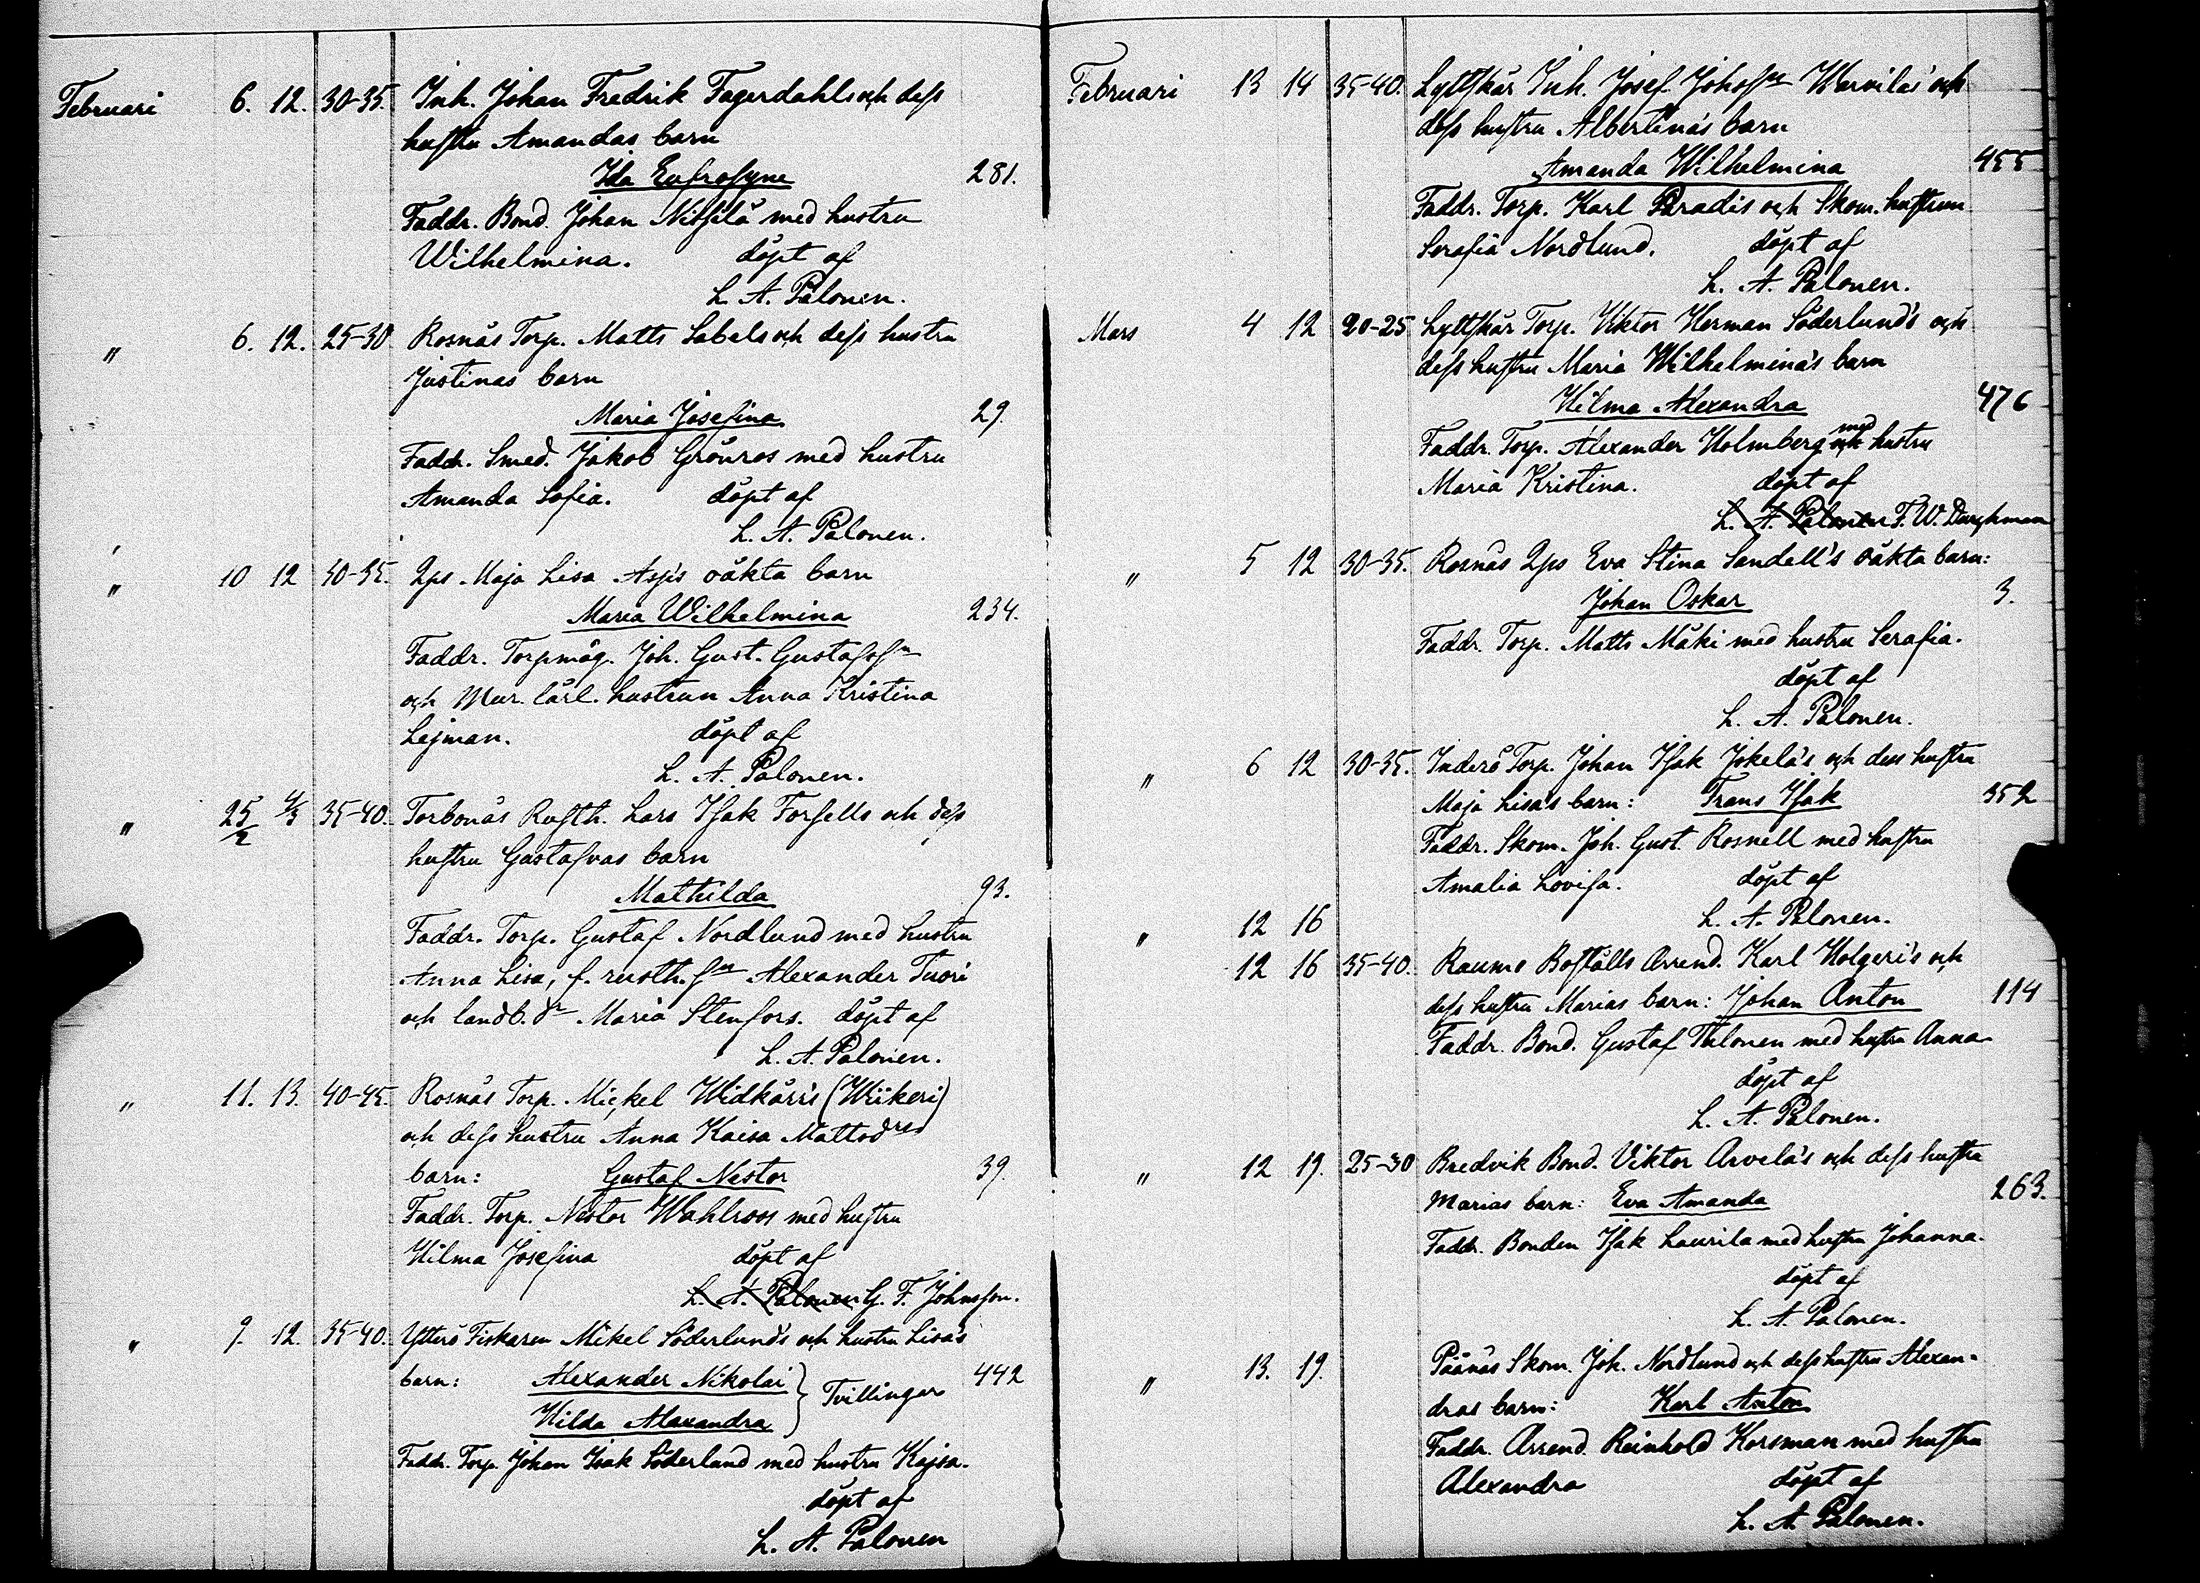 Februari 6. 12. 30-35. Inh. Johan Fredrik Fagerdahls och dess
hustru Amandas barn
Ida Eufrosyne 281.
Faddr. Bond. Johan Nissilä med hustru
Wilhelmina. döpt af
L. A. Palonen.
" 6. 12. 25-30 Rosnäs Torp. Matts Sabels och dess hustru
Justinas barn
Maria Josefina 29.
Faddr. Smed. Jakob Grönros med hustru
Amanda Sofia. döpt af
L. A. Palonen.
" 10 12 30-35. Qps Maja Lisa Asp's oäkta barn
Maria Wilhelmina 234.
Faddr. Torpmåg. Joh. Gust. Gustafsn
och Mur. lärl. hustrun Anna Kristina
Lejman. döpt af
L. A. Palonen.
" 25/2 4/3 35-40. Torbonäs Rusth. Lars Isak Forsells och dess
hustru Gustafvas barn
Mathilda 93.
Faddr. Torp. Gustaf Nordlund med hustru
Anna Lisa, f. rusth. sn Alexander Tuori
och landb. dr Maria Stenfors. döpt af
L. A. Palonen.
" 11. 13. 40-45. Rosnäs Torp. Mickel Widkärri's (Wiikeri)
och dess hustru Anna Kaisa Mattsdrs
barn: Gustaf Nestor 39.
Faddr. Torp. Nestor Wahlroos med hustru
Hilma Josefina döpt af
L. A. Palonen G. F. Johnsson.
" 9. 12. 35-40. Ytterö Fiskaren Mikel Söderlunds och hustru Lisa's
barn: Alexander Nikolai } Tvillingar 442
Hilda Alexandra
Faddr. Torp. Johan Isak Söderlund med hustru Kajsa.
döpt af
L. A. Palonen
Februari 13 14 35-40. Lyttskär Inh. Josef Johansn Warvilas' och
dess hustru Albertina's barn
Amanda Wilhelmina 455
Faddr. Torp. Karl Paradis och Skom. hustrun
Serafia Nordlund. döpt af
L. A. Palonen.
Mars 4 12 20-25 Lyttskär Torp. Viktor Herman Söderlund's och
dess hustru Maria Wilhelmina's barn
Hilma Alexandra 476
Faddr. Torp. Alexander Holmberg och med hustru
Maria Kristina. döpt af
L. A. Palonen F. W. Durchman
" 5 12 30-35. Rosnäs Qps Eva Stina Sandell's oäkta barn:
Johan Oskar 3.
Faddr. Torp. Matts Mäki med hustru Serafia.
döpt af
L. A. Palonen.
" 6 12 30-35. Inderö Torp. Johan Isak Jokela's och dess hustru
Maja Lisas barn: Frans Isak 352
Faddr. Skom. Joh. Gust. Rosnell med hustru
Amalia Lovisa. döpt af
" 12 16 L. A. Palonen.
12 16 35-40. Raumo Boställs Arrend. Karl Holgeri's och
dess hustru Marias barn: Johan Anton 114
Faddr. Bond. Gustaf Talonen med hustru Anna
döpt af
L. A. Palonen.
" 12 19. 25-30 Bredvik Bond. Viktor Arvela's och dess hustru
Marias barn: Eva Amanda 263.
Faddr. Bonden Isak Laurila med hustru Johanna.
döpt af
L. A. Palonen.
" 13. 19. Påånäs Skom. Joh. Nordlund och dess hustru Alexan-
dras barn: Karl Anton
Faddr. Arrend. Reinhold Korsman med hustru
Alexandra döpt af
L. A. Palonen.